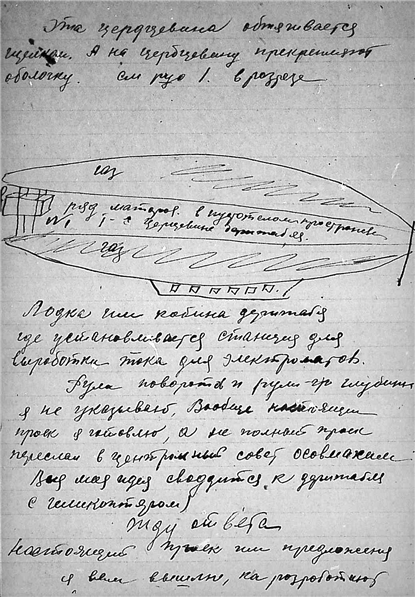 Эта сердцевина обтягивается
шелком. А на сердцевину прикрепляют
оболочку. см рис 1. в разрезе
газ
ряд маторов. в пустотелом пространстве
№ 1 сердцевине дережабля.
газ
Лодка или кабина дережабля
где установливается станция для
выработки тока для электроматов.
Руля поворота и рули глубины
я не указываю, Вообще настоящий
проек я готовлю, а не полный проек
переслал в центральный совет осовиахима
Вся моя идея сводится к дережабля
с геликоптером
Жду ответа
Настоящий проек или предложения
я вам вышлю, на разработку